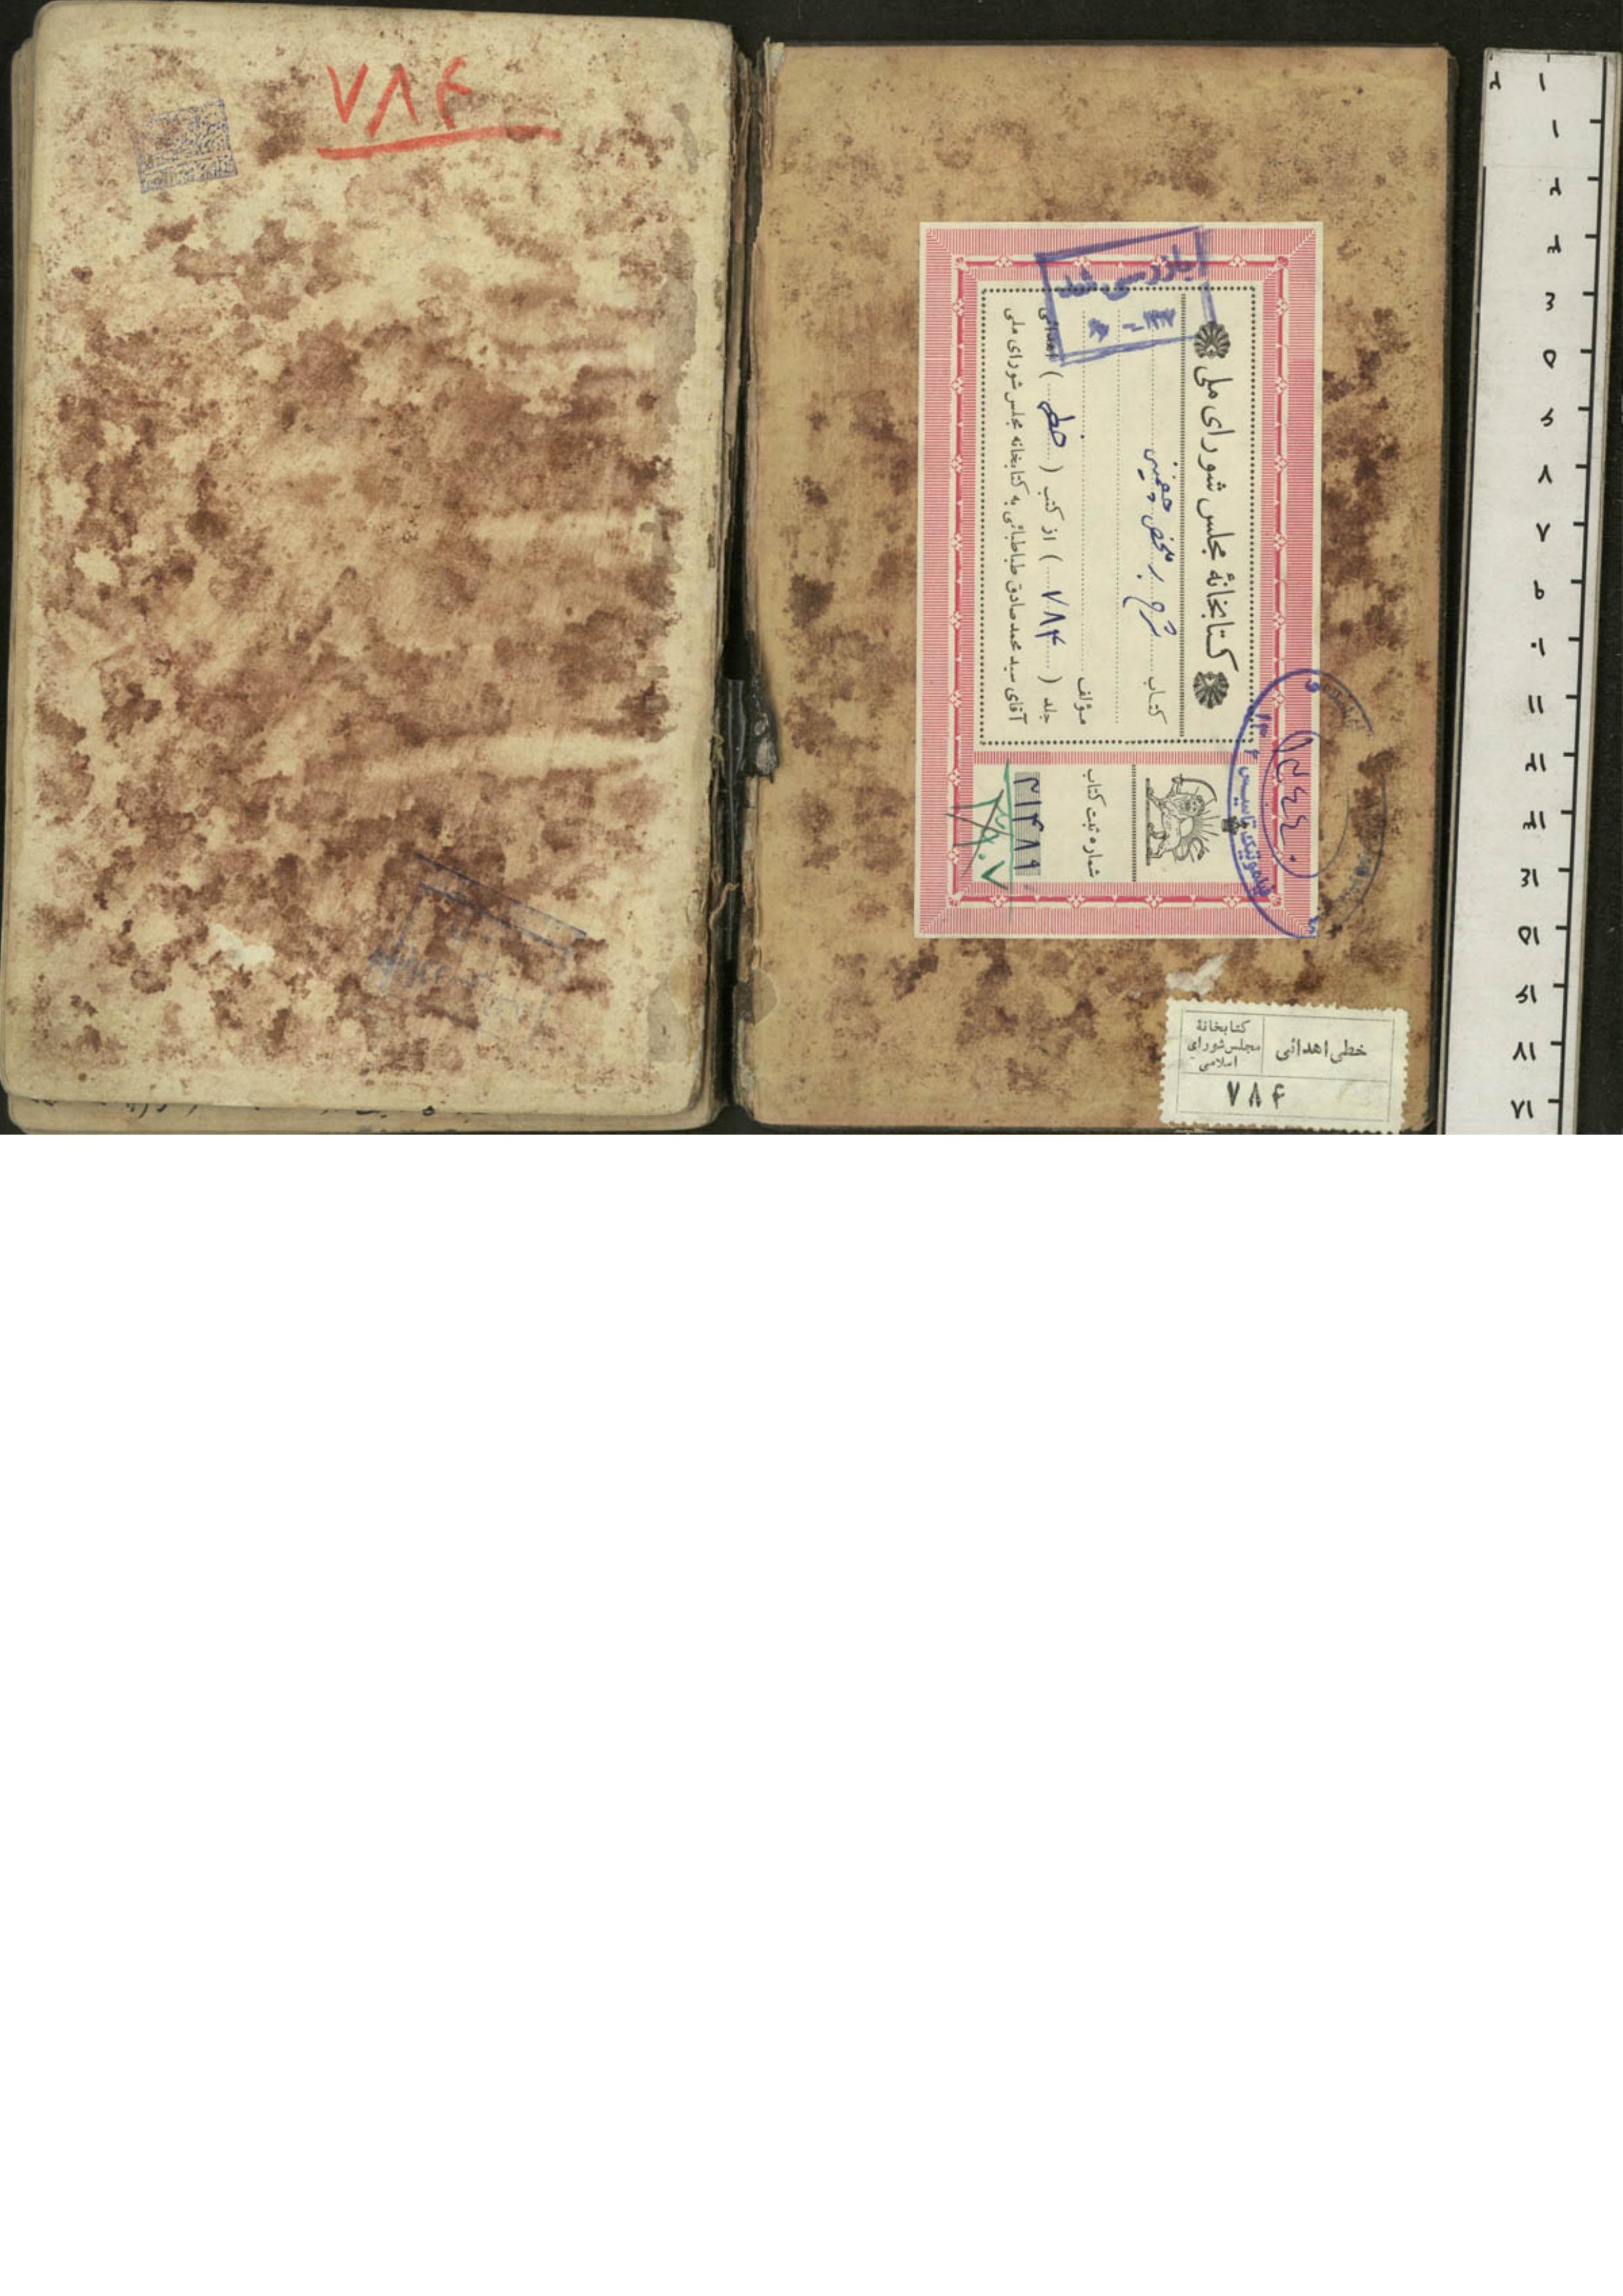 ۷۸۴
بازرسی شد
کتابخانهٔ مجلس شورای ملی
کتاب شرح بر ملخص چغمینی
مؤلف
جلد ( ۷۸۴ ) از کتب ( خطی ) اهدائی
آقای سید محمدصادق طباطبائی به کتابخانه مجلس شورای ملی
شماره ثبت کتاب
۳۱۴۸۹
خطی اهدائی
کتابخانهٔ
مجلس شورای
اسلامی
۷۸۴
۱
۲
۳
۴
۵
۶
۷
۸
۹
۱۰
۱۱
۱۲
۱۳
۱۴
۱۵
۱۶
۱۷
۱۸